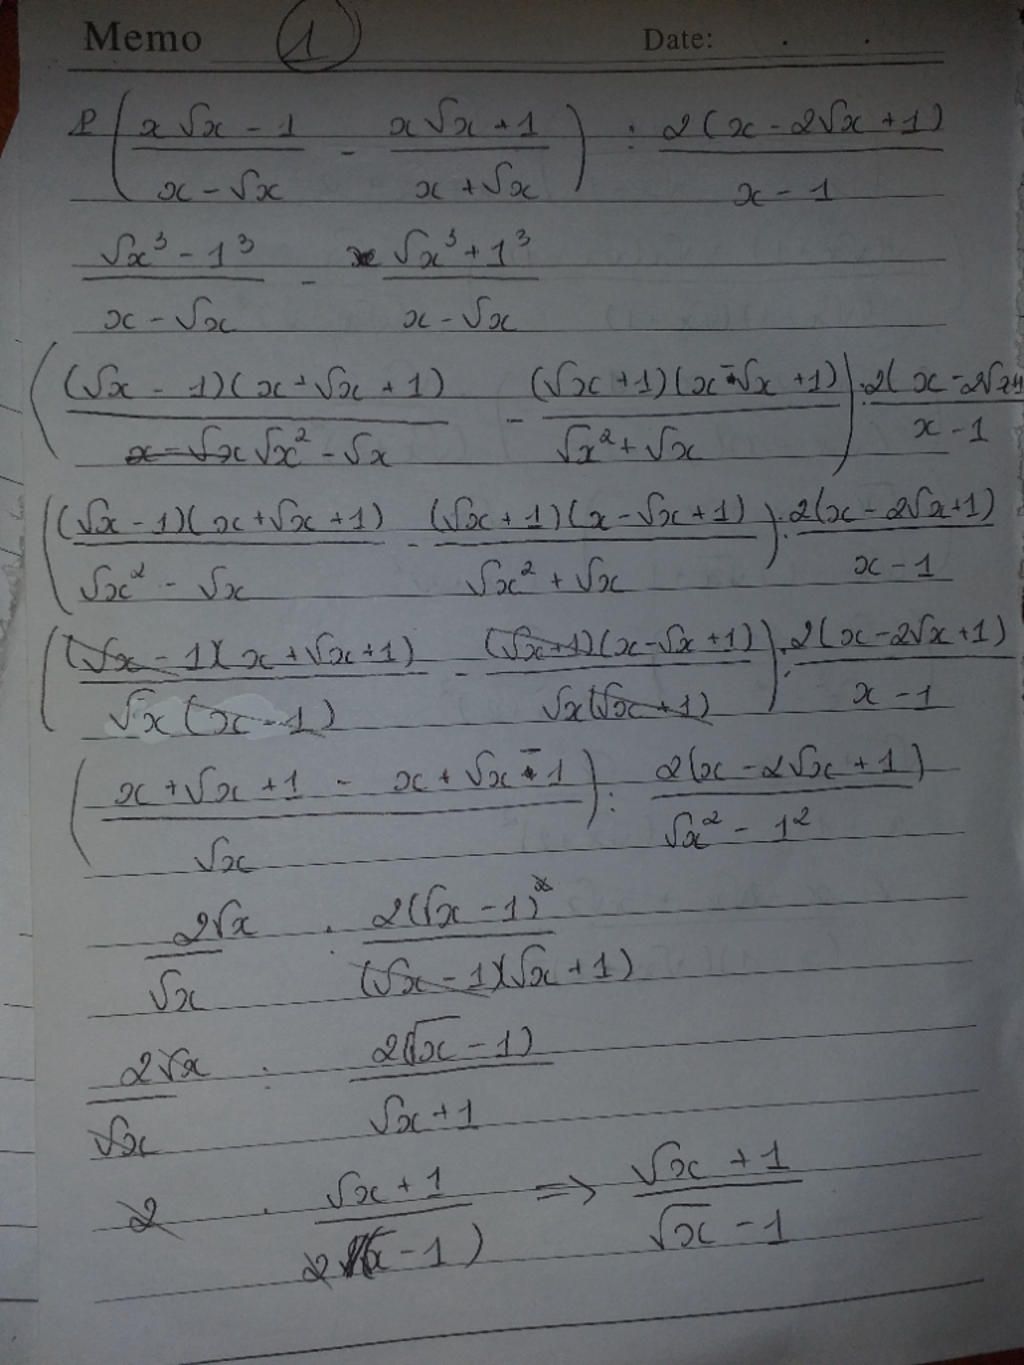 Memo 1 Date: . .
P ( (x√x - 1)/(x - √x) - (x√x + 1)/(x + √x) ) : 2(x - 2√x + 1)/(x - 1)
(√x³ - 1³)/(x - √x) - (√x³ + 1³)/(x - √x)
( (√x - 1)(x + √x + 1)/(√x² - √x) - (√x + 1)(x - √x + 1)/(√x² + √x) ) : 2(x - 2√x+1/(x - 1)
( (√x - 1)(x + √x + 1)/(√x² - √x) - (√x + 1)(x - √x + 1)/(√x² + √x) ) : 2(x - 2√x + 1)/(x - 1)
( (√x - 1)(x + √x + 1)/(√x(x - 1)) - (√x + 1)(x - √x + 1)/(√x(√x + 1)) ) : 2(x - 2√x + 1)/(x - 1)
( (x + √x + 1 - x + √x - 1)/√x ) : 2(x - 2√x + 1)/(√x² - 1²)
2√x/√x : 2(√x - 1)²/((√x - 1)(√x + 1))
2√x/√x : 2(√x - 1)/(√x + 1)
2 . (√x + 1)/(2(√x - 1)) => (√x + 1)/(√x - 1)